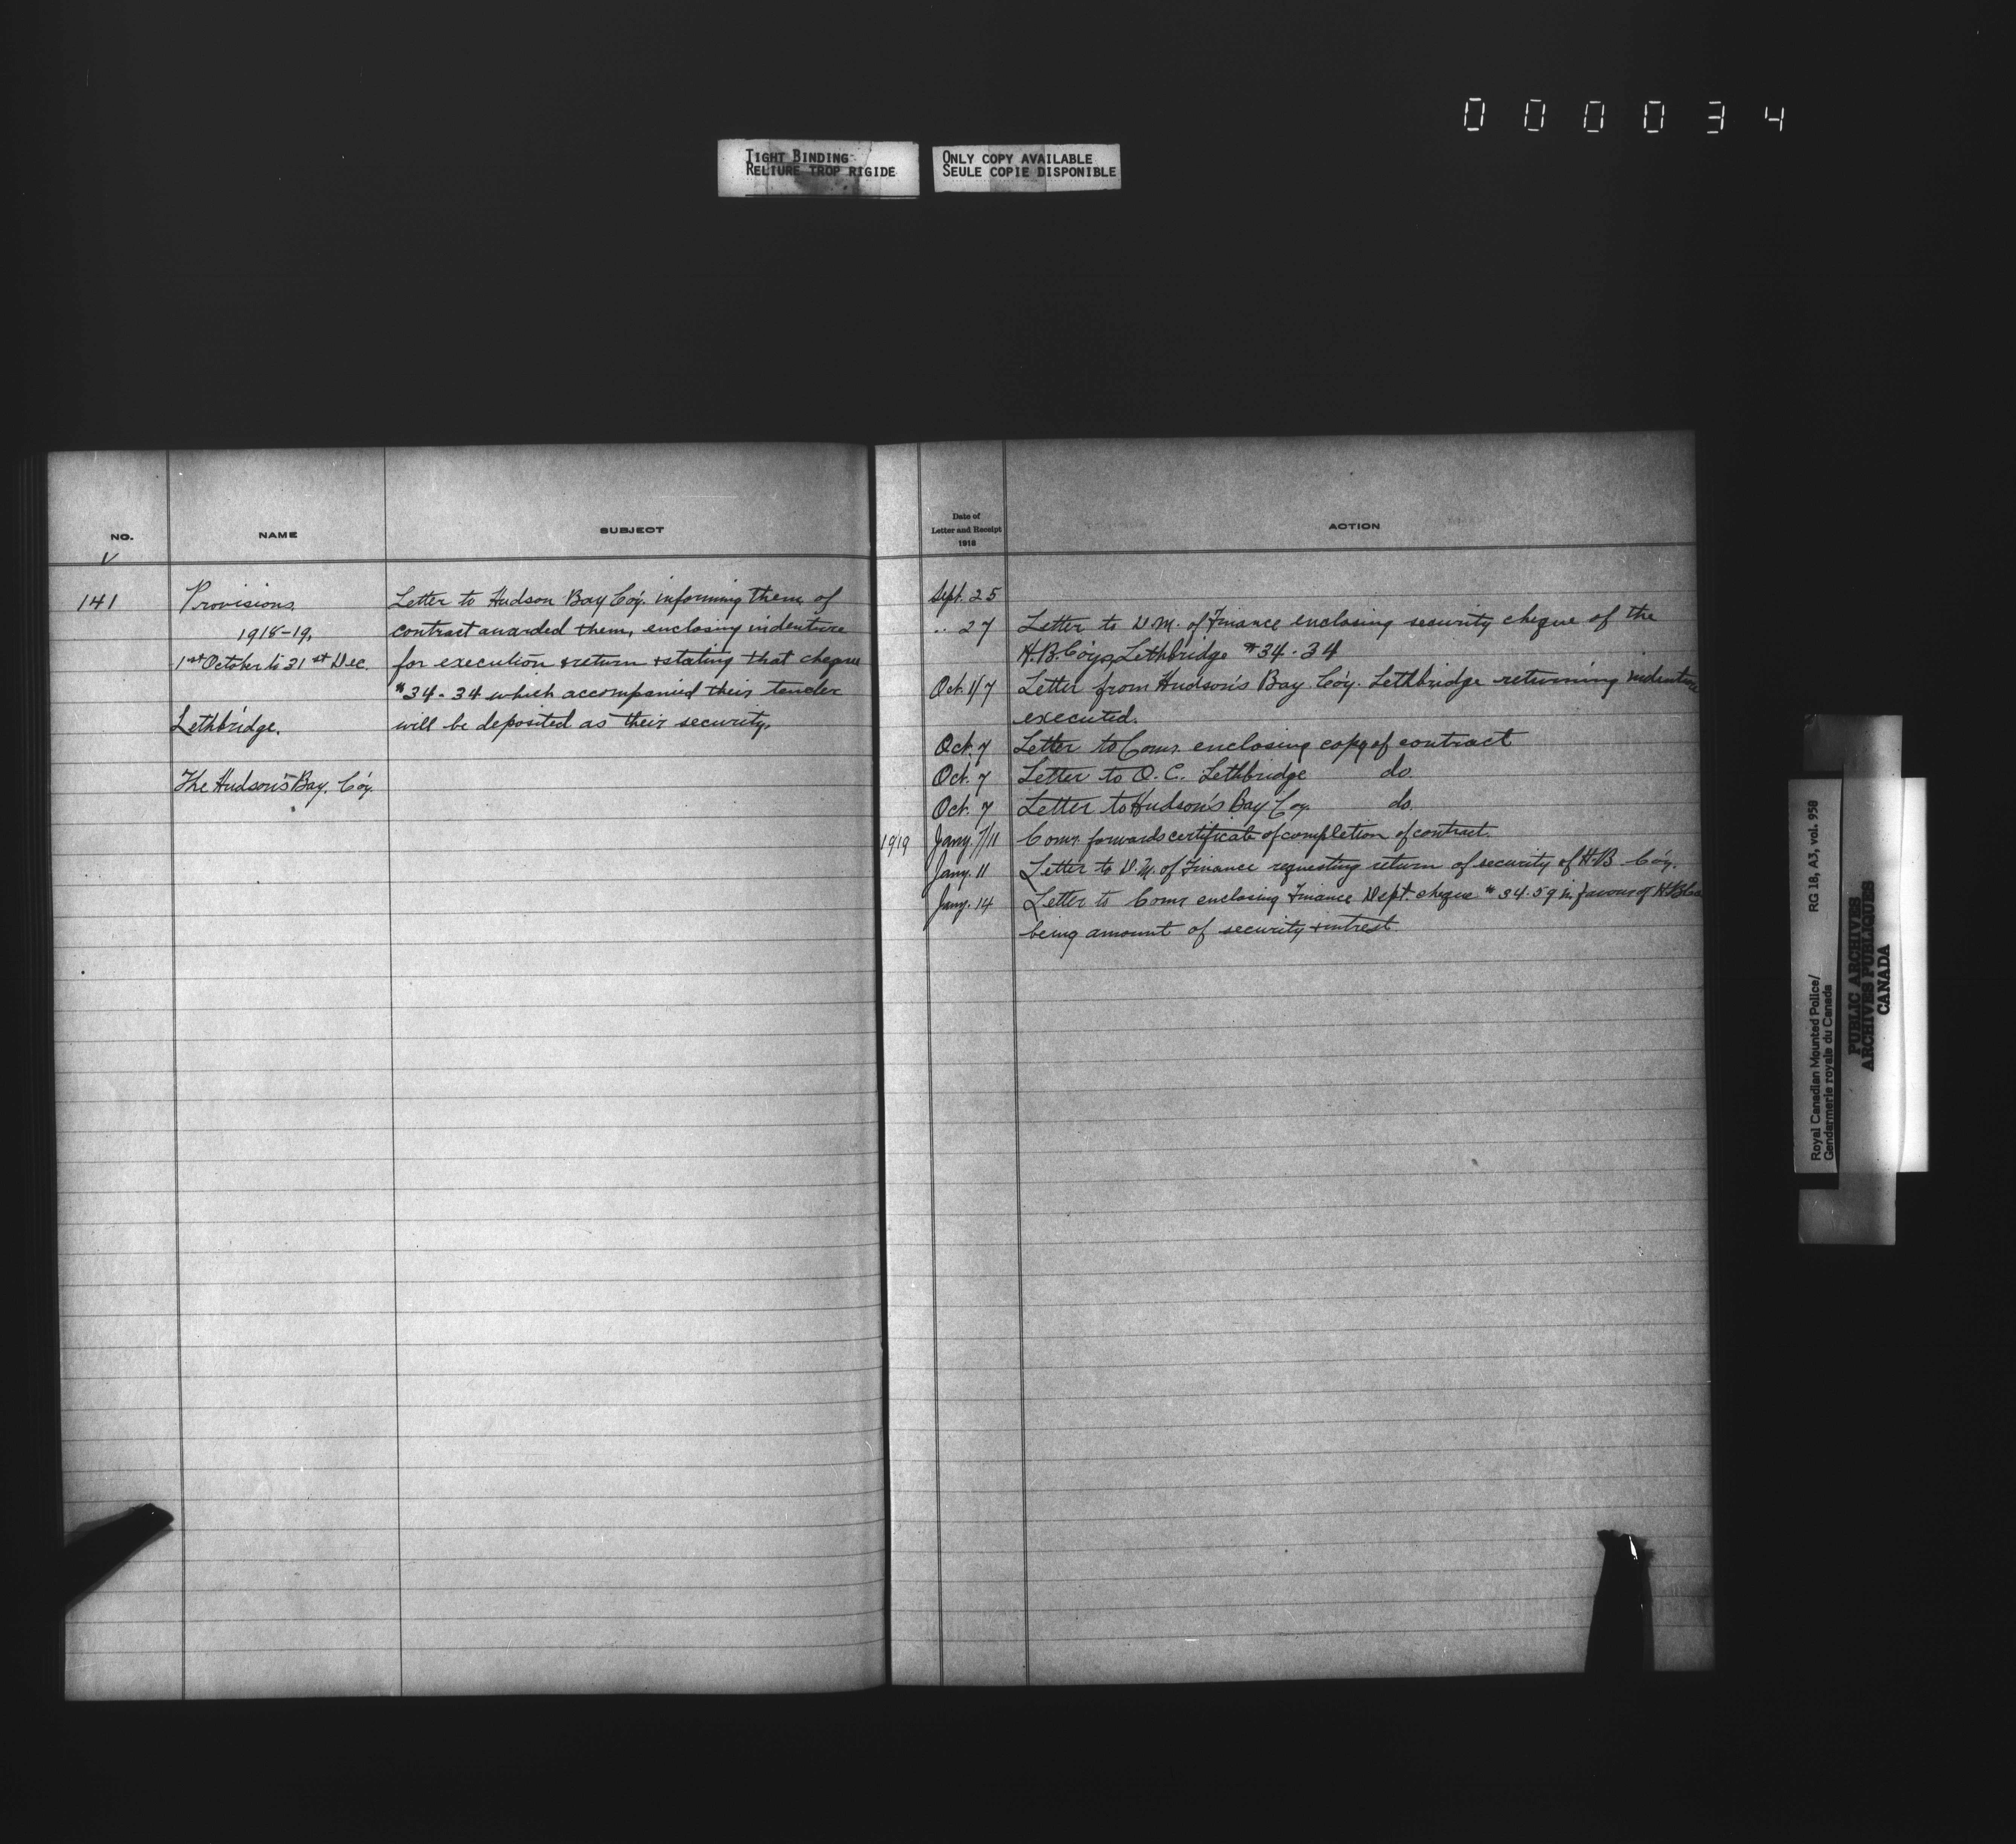 000034
TIGHT BINDING
RELIURE TROP RIGIDE
ONLY COPY AVAILABLE
SEULE COPIE DISPONIBLE
NO.
NAME
SUBJECT
V
141
Provisions
1918-19,
1st October to 31st Dec.
Lethbridge.
The Hudson's Bay. Coy.
Letter to Hudson Bay Coy. informing them of
contract awarded them, enclosing indenture
for execution & return & stating that cheque
$34.34 which accompanied their tender
will be deposited as their security.
Date of
Letter and Receipt
1918
ACTION
Sept. 25
.. 27 Letter to D.M. of Finance enclosing security cheque of the
H.B. Coy, Lethbridge $34.34
Oct. 1/7 Letter from Hudson's Bay Coy. Lethbridge returning indenture
executed.
Oct. 7 Letter to Comr. enclosing copy of contract
Oct. 7 Letter to O.C. Lethbridge do.
Oct. 7 Letter to Hudson's Bay Coy. do.
1919 Jany. 7/11 Comr. forwards certificate of completion of contract.
Jany. 11 Letter to D.M. of Finance requesting return of security of H.B. Coy.
Jany. 14 Letter to Comr enclosing Finance Dept. cheque $34.59 in favour of H.B. Co
being amount of security & intrest.
Royal Canadian Mounted Police/
Gendarmerie royale du Canada
RG 18, A3, vol. 958
PUBLIC ARCHIVES
ARCHIVES PUBLIQUES
CANADA